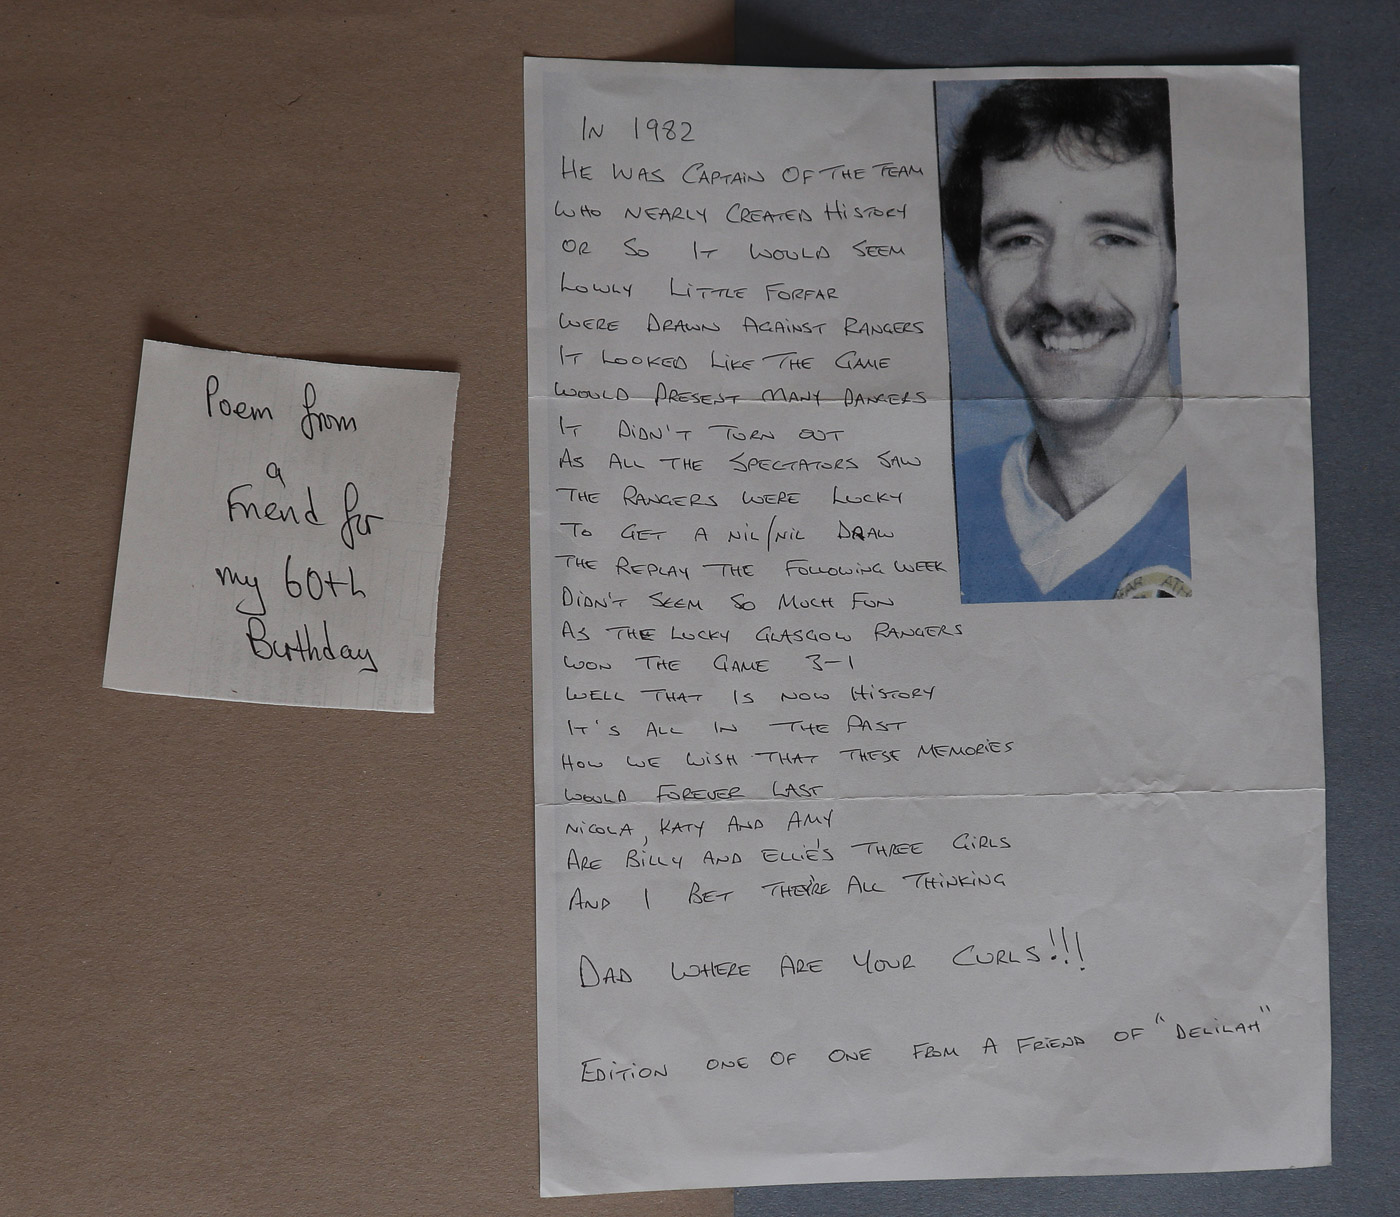 Poem from
a
Friend for
my 60th
Birthday
IN 1982
HE WAS CAPTAIN OF THE TEAM
WHO NEARLY CREATED HISTORY
OR SO IT WOULD SEEM
LOWLY LITTLE FORFAR
WERE DRAWN AGAINST RANGERS
IT LOOKED LIKE THE GAME
WOULD PRESENT MANY DANGERS
IT DIDN'T TURN OUT
AS ALL THE SPECTATORS SAW
THE RANGERS WERE LUCKY
TO GET A NIL/NIL DRAW
THE REPLAY THE FOLLOWING WEEK
DIDN'T SEEM SO MUCH FUN
AS THE LUCKY GLASGOW RANGERS
WON THE GAME 3-1
WELL THAT IS NOW HISTORY
IT'S ALL IN THE PAST
HOW WE WISH THAT THESE MEMORIES
WOULD FOREVER LAST
NICOLA, KATY AND AMY
ARE BILLY AND ELLIE'S THREE GIRLS
AND I BET THEY'RE ALL THINKING
DAD WHERE ARE YOUR CURLS!!!
EDITION ONE OF ONE FROM A FRIEND OF "DELILAH"
FAR ATH